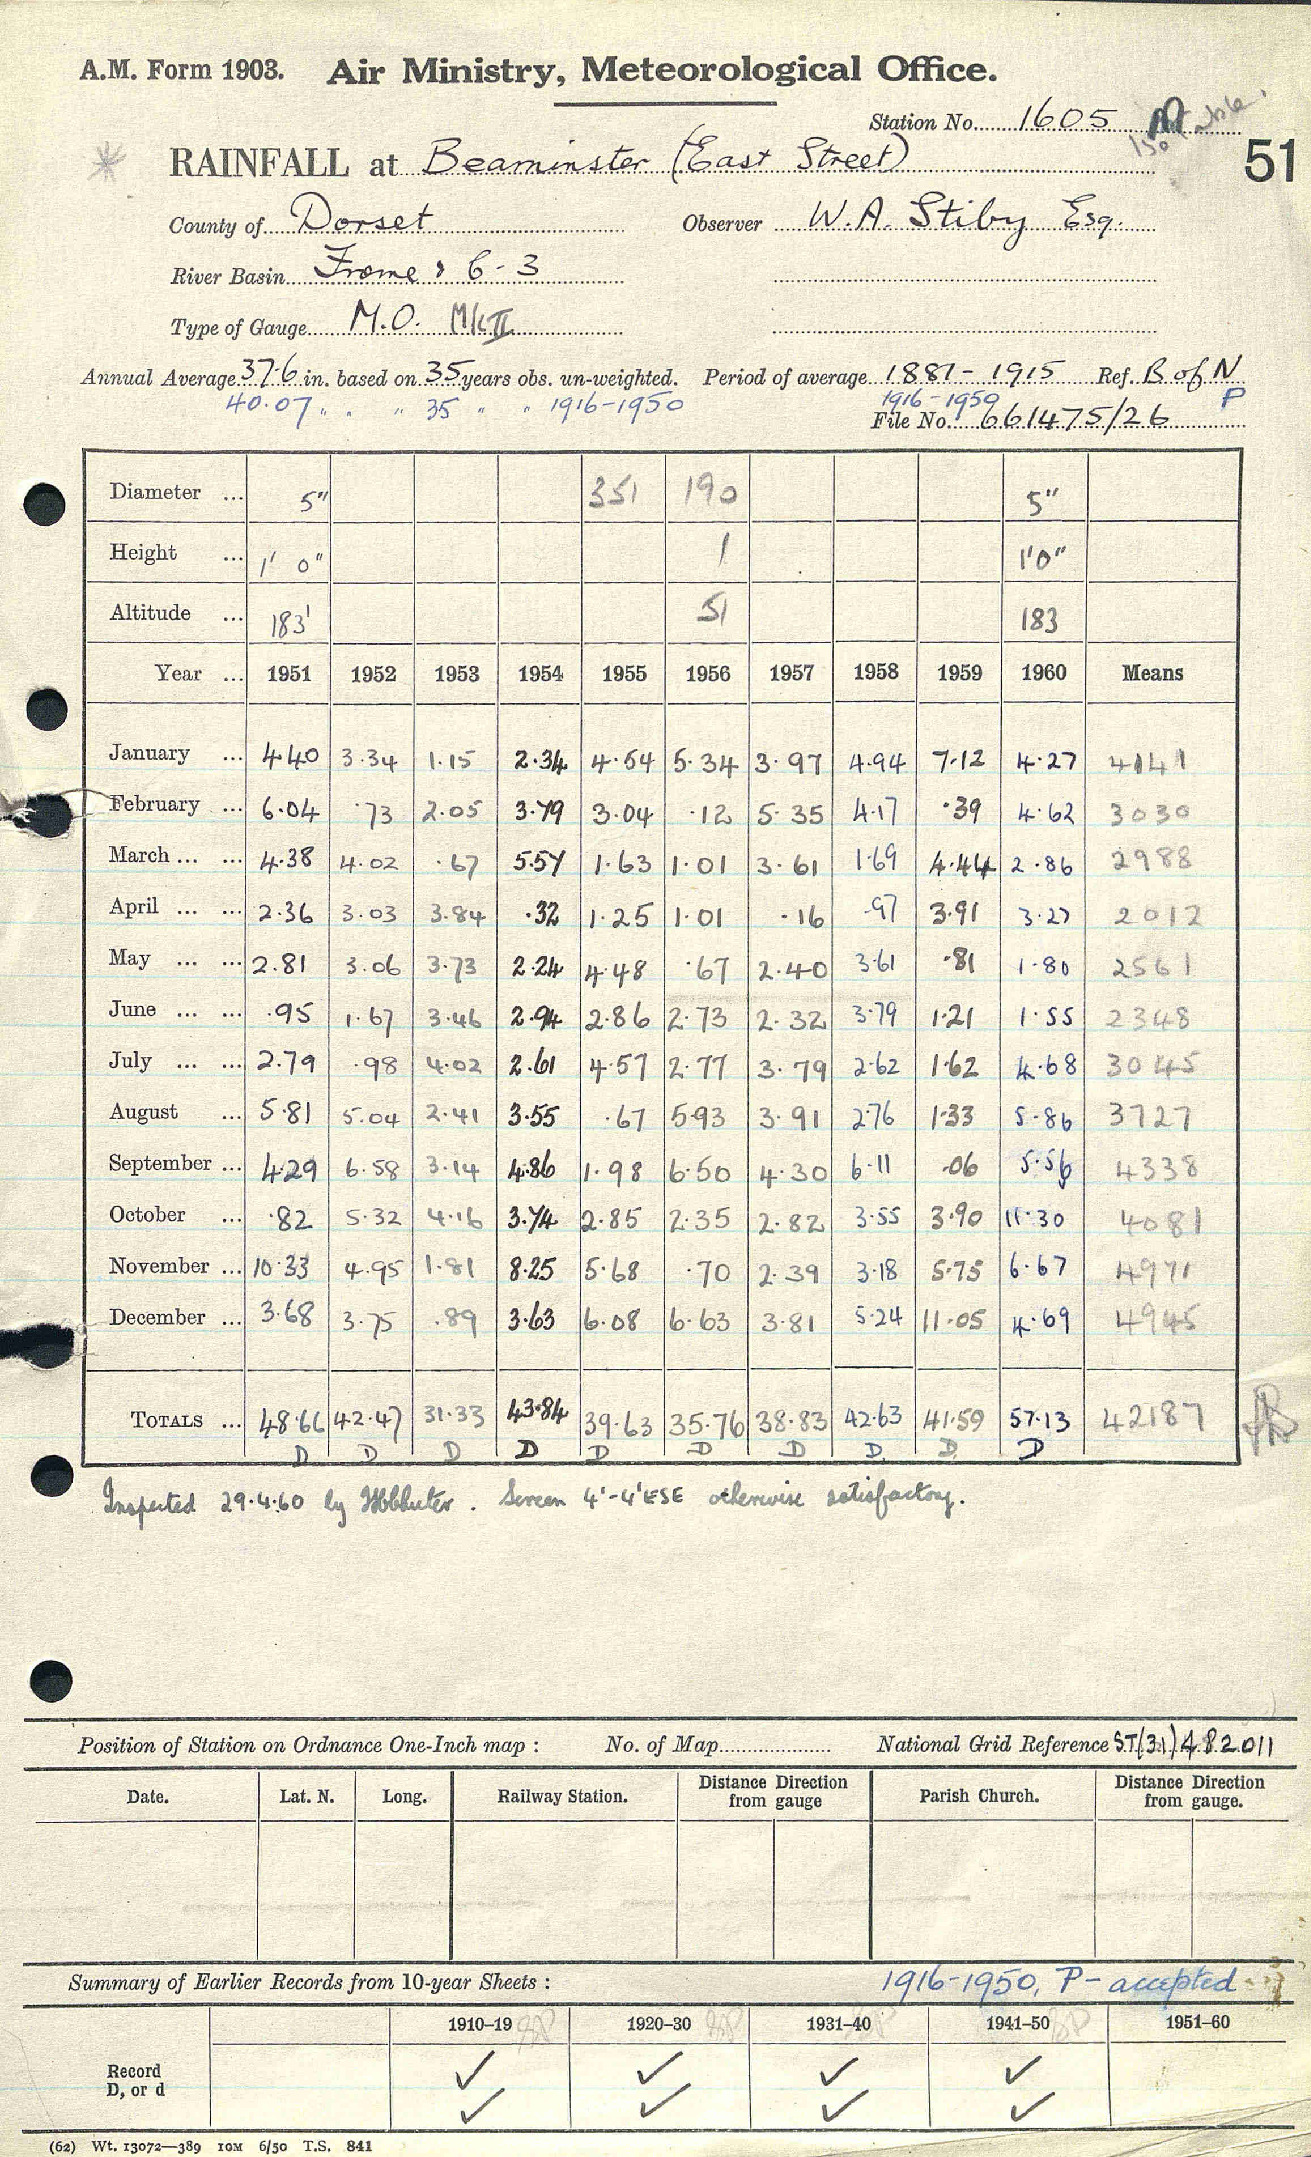 A.M. Form 1903. Air Ministry, Meteorological Office.
Station No. 1605
51
RAINFALL at Beaminster (East Street)
County of Dorset Observer W.A. Stiby Esq.
River Basin Frome & 6-3
Type of Gauge M.O. MkII
Annual Average 37.6 in. based on 35 years obs. un-weighted. Period of average 1881-1915 Ref. B of N
40.07 " " " 35 " " 1916-1950 1916-1950 P
File No. 661475/26
Diameter ... 5" 351 190 5"
Height ... 1' 0" 1 1'0"
Altitude ... 183' 51 183
Year ... 1951 1952 1953 1954 1955 1956 1957 1958 1959 1960 Means
January ... 4.40 3.34 1.15 2.34 4.54 5.34 3.97 4.94 7.12 4.27 4141
February ... 6.04 .73 2.05 3.79 3.04 .12 5.35 4.17 .39 4.62 3030
March ... ... 4.38 4.02 .67 5.57 1.63 1.01 3.61 1.69 4.44 2.86 2988
April ... ... 2.36 3.03 3.84 .32 1.25 1.01 .16 .97 3.91 3.27 2012
May ... ... 2.81 3.06 3.73 2.24 4.48 .67 2.40 3.61 .81 1.80 2561
June ... ... .95 1.67 3.46 2.94 2.86 2.73 2.32 3.79 1.21 1.55 2348
July ... ... 2.79 .98 4.02 2.61 4.57 2.77 3.79 2.62 1.62 4.68 3045
August ... 5.81 5.04 2.41 3.55 .67 5.93 3.91 2.76 1.33 5.86 3727
September ... 4.29 6.58 3.14 4.86 1.98 6.50 4.30 6.11 .06 5.56 4338
October ... .82 5.32 4.16 3.74 2.85 2.35 2.82 3.55 3.90 11.30 4081
November ... 10.33 4.95 1.81 8.25 5.68 .70 2.39 3.18 5.75 6.67 4971
December ... 3.68 3.75 .89 3.63 6.08 6.63 3.81 5.24 11.05 4.69 4945
TOTALS ... 48.66 42.47 31.33 43.84 39.63 35.76 38.83 42.63 41.59 57.13 42187
D D D D D D D D D D
Inspected 29.4.60 by . Screen 4'-4'ESE otherwise satisfactory.
Position of Station on Ordnance One-Inch map : No. of Map National Grid Reference ST(31)482011
Date. Lat. N. Long. Railway Station. Distance Direction from gauge Parish Church. Distance Direction from gauge.
Summary of Earlier Records from 10-year Sheets : 1916-1950, P- accepted
1910–19 1920–30 1931–40 1941–50 1951–60
Record ✓ ✓ ✓ ✓
D, or d ✓ ✓ ✓ ✓
(62) Wt. 13072—389 10M 6/50 T.S. 841